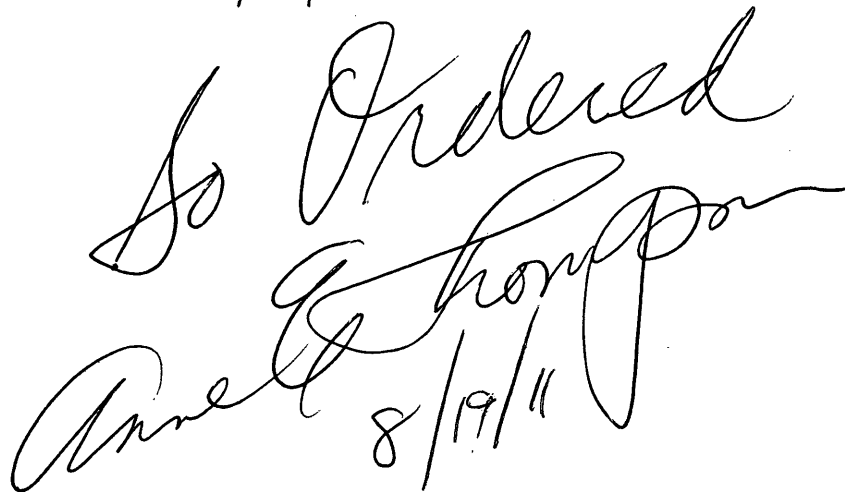 So Ordered
Anne E Thompson
8/19/11